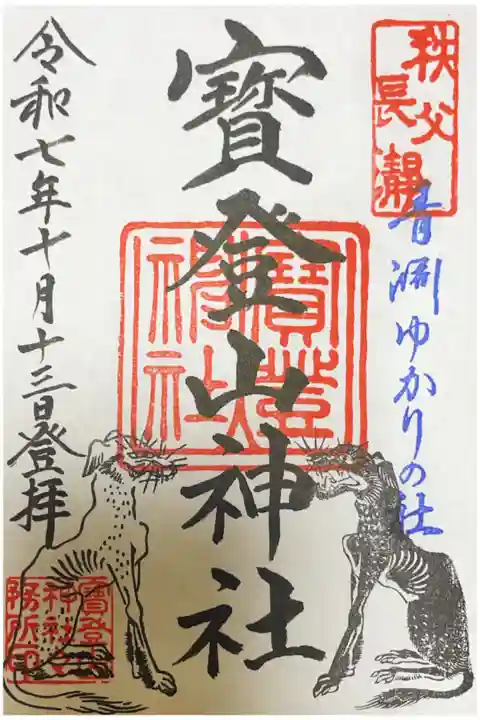 秩父
長瀞
青淵ゆかりの社
寳登山神社
寳登山
神社
令和七年十月十三日登拝
寳登山
神社
務所印